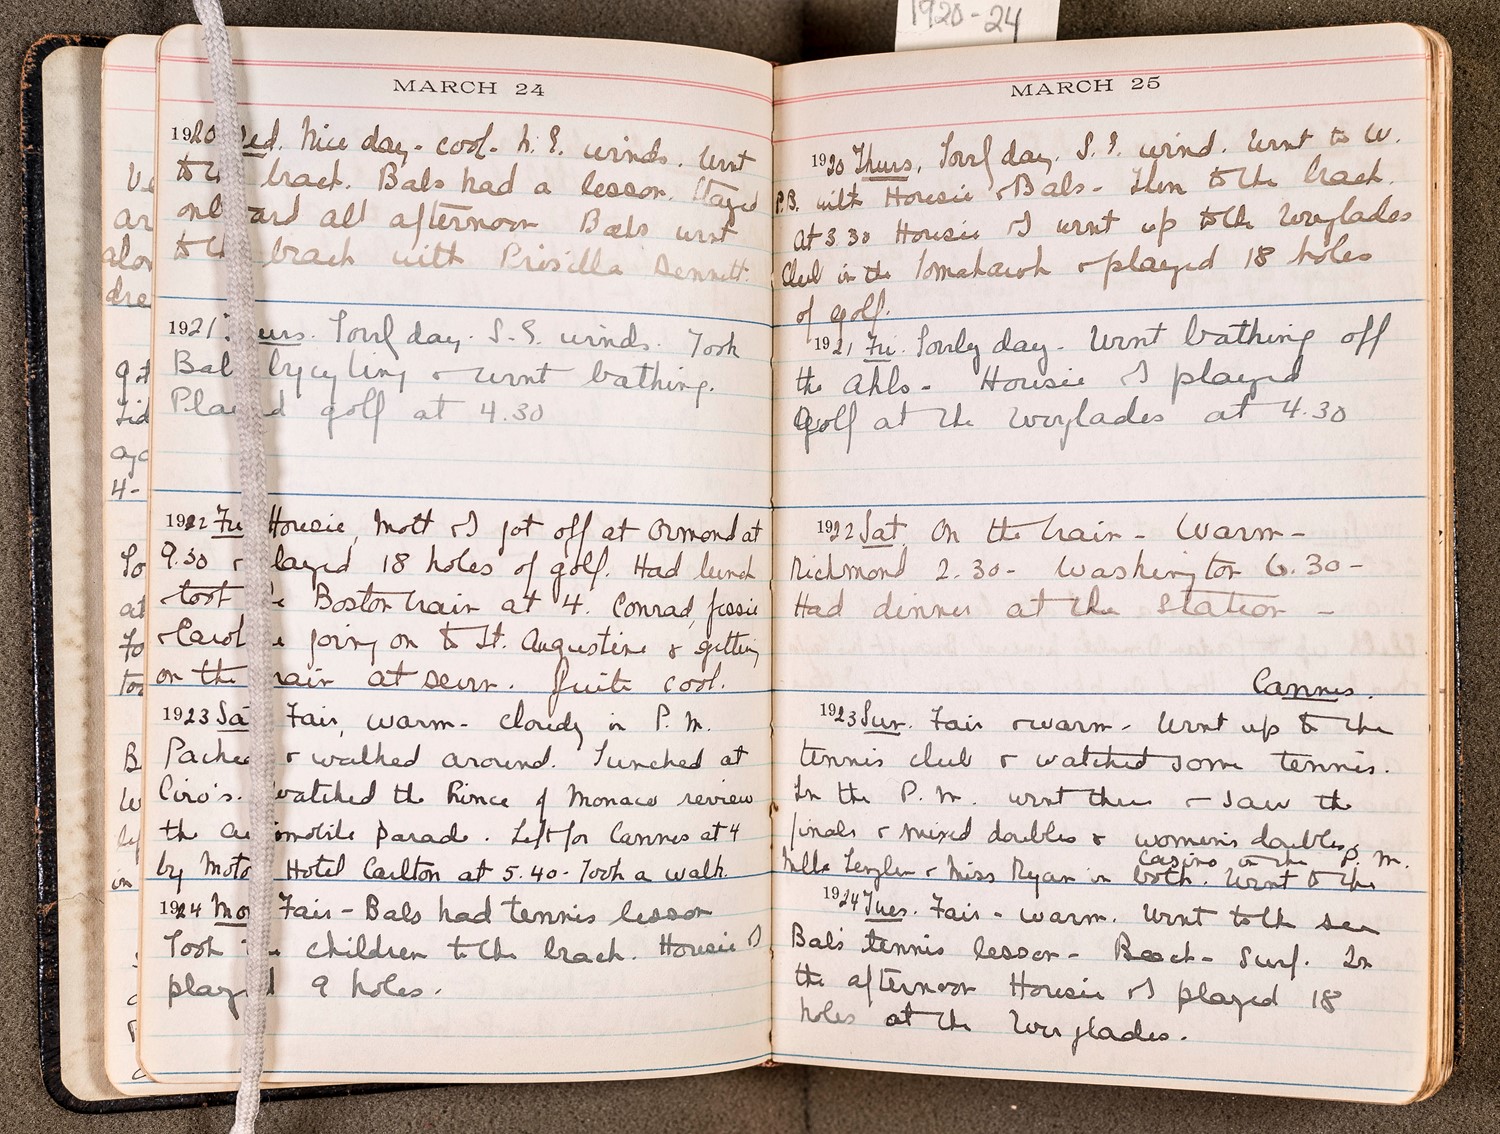 1920-24
MARCH 24
1920 Wed. Nice day - cool - N. E. winds. Went
to the beach. Babs had a lesson. Stayed
onboard all afternoon Babs went
to the beach with Priscilla Bennett.
1921 Thurs. Lovely day. S. E. winds. Took
Babs bycycling & went bathing.
Played golf at 4.30
1922 Fri Housie, Mott & I got off at Ormond at
9.30 & played 18 holes of golf. Had lunch
& took the Boston train at 4. Conrad, Jessie
& Caroline going on to St. Augustine & getting
on the train at seven. Quite cool.
1923 Sat Fair, warm - cloudy in P. M.
Packed & walked around. Lunched at
Ciro's. Watched the Prince of Monaco review
the automobile parade. Left for Cannes at 4
by Motor Hotel Carlton at 5.40 - Took a walk.
1924 Mon Fair - Babs had tennis lesson
Took the children to the beach. Housie & I
played 9 holes.
MARCH 25
1920 Thurs. Lovely day. S. E. wind. Went to W.
P.B. with Housie & Babs - then to the beach.
At 3.30 Housie & I went up to the Everglades
Club in the Tomahawk & played 18 holes
of golf.
1921 Fri. Lovely day - Went bathing off
the - Housie & I played
Golf at the Everglades at 4.30
1922 Sat On the train - Warm -
Richmond 2.30 - Washington 6.30 -
Had dinner at the station -
Cannes.
1923 Sun. Fair & warm - Went up to the
tennis club & watched some tennis.
In the P. M. went there & saw the
finals & mixed doubles & women's doubles,
Mlle Lenglen & Miss Ryan in both. Went to the
casino in the P. M.
1924 Tues. Fair - warm. Went to the see
Babs tennis lesson - Beach - Surf. In
the afternoon Housie & I played 18
holes at the Everglades.